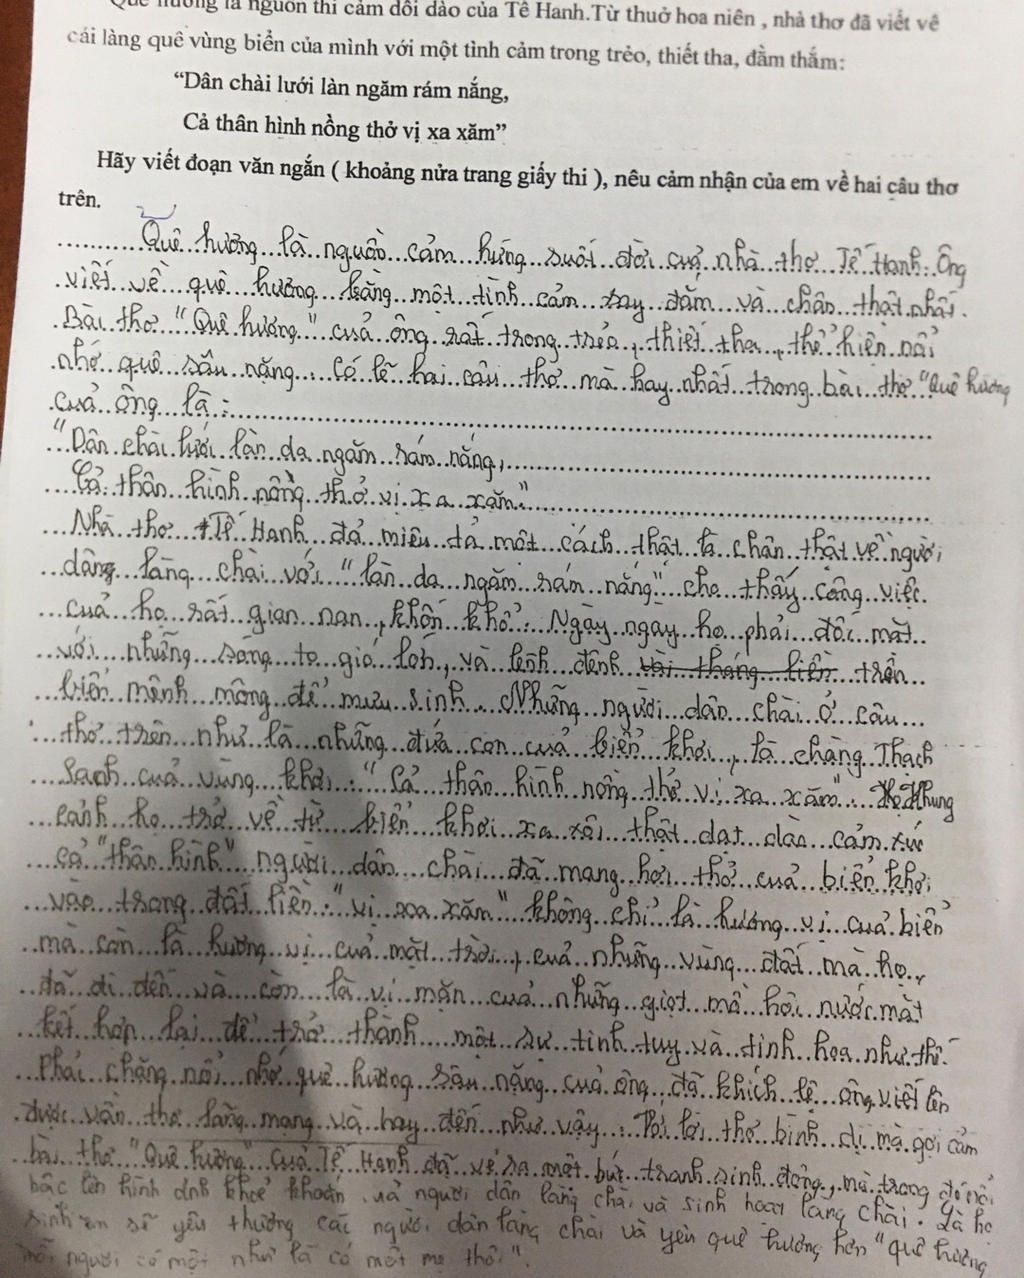 Quê hương là nguồn thi cảm dồi dào của Tế Hanh.Từ thuở hoa niên , nhà thơ đã viết về
cái làng quê vùng biển của mình với một tình cảm trong trẻo, thiết tha, đằm thắm:
“Dân chài lưới làn ngăm rám nắng,
Cả thân hình nồng thở vị xa xăm”
Hãy viết đoạn văn ngắn ( khoảng nửa trang giấy thi ), nêu cảm nhận của em về hai câu thơ
trên.
Quê hương là nguồn cảm hứng suốt đời cuả nhà thơ Tế Hanh. Ông
viết về quê hương bằng một tình cảm say đắm và chân thật nhất.
Bài thơ "Quê hương" cuả ông rất trong trẻo, thiết tha, thể hiện nổi
nhớ quê sâu nặng. Có lẽ hai câu thơ mà hay nhất trong bài thơ "Quê hương
cuả ông là:
"Dân chài lưới làn da ngăm rám nắng,
Cả thân hình nồng thở vị xa xăm"
Nhà thơ Tế Hanh đả miêu tả một cách thật là chân thật về người
dâng làng chài với "làn da ngăm rám nắng" cho thấy công việc
cuả họ rất gian nan, khốn khổ. Ngày ngày họ phải đối mặt
với những sóng to gió lớn, và lênh đênh trên
biển mênh mông để mưu sinh. Những người dân chài ở câu
thơ trên như là những đứa con cuả biển khơi, là chàng Thạch
Sach cuả vùng khơi. "Cả thân hình nồng thở vị xa xăm". Khung
cảnh họ trở về từ biển khơi xa xôi thật dạt dào cảm xúc
cả "thân hình" người dân chài đã mang hơi thở cuả biển khơi
vào trong đất liền. "vị xa xăm" không chỉ là hương vị cuả biển
mà còn là hương vị cuả mặt trời, cuả những vùng đất mà họ
đã đi đến và còn là vị mặn cuả những giọt mồ hôi nước mắt
kết hợp lại để trở thành một sự tinh tuy và tinh hoa như thế.
Phải chăng nổi nhớ quê hương sâu nặng cuả ông đã khích lệ ông viết lên
được vần thơ lãng mạng và hay đến như vậy. lời thơ bình dị mà gợi cảm
bài thơ "Quê hương" cuả Tế Hanh đã vẻ ra một bức tranh sinh động, mà trong đó nổi
bậc lên hình ảnh khoẻ khoắn cuả người dân làng chài và sinh hoạt làng chài. Là học
sinh em sẽ yêu thương các người dân làng chài và yêu quê hương hơn "quê hương
mỗi người có một như là có một mẹ thôi".